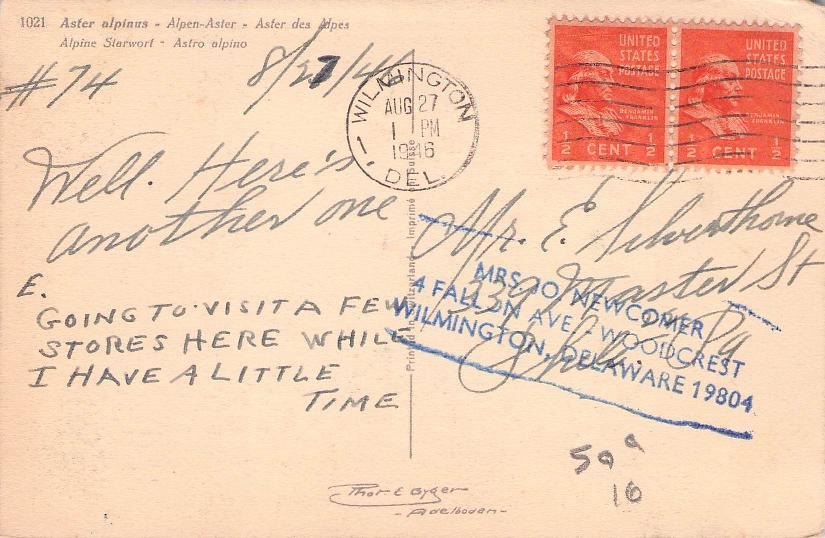 1021 Aster alpinus - Alpen-Aster - Aster des Alpes
Alpine Starwort - Astro alpino
#74
8/27/46
WILMINGTON
AUG 27
1 PM
1946
DEL.
UNITED STATES POSTAGE
BENJAMIN FRANKLIN
1/2 CENT 1/2
UNITED STATES POSTAGE
BENJAMIN FRANKLIN
1/2 CENT 1/2
Well. Here's
another one
E.
GOING TO VISIT A FEW
STORES HERE WHILE
I HAVE A LITTLE
TIME
Printed in Switzerland - Imprimé en Suisse
Mr. E. Silverthorne
Master St
Phila. Pa
MRS. JO. NEWCOMER
4 FALLON AVE., WOODCREST
WILMINGTON, DELAWARE 19804
16
Thor E Gyger
- Adelboden -